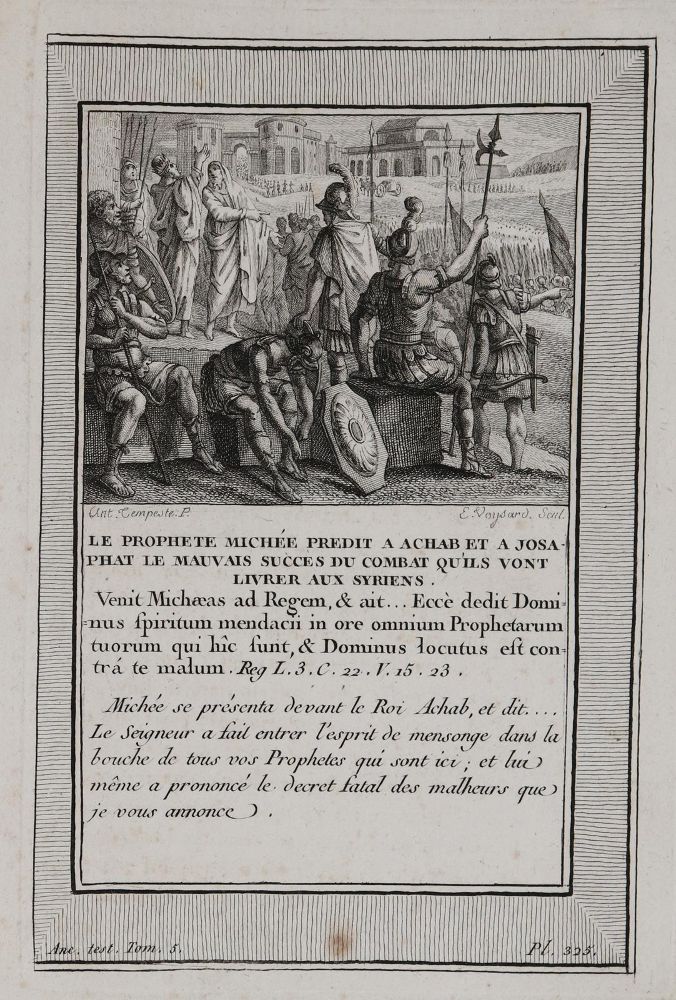 Ant. Tempeste. P.
E. Voysard. Scul.
LE PROPHETE MICHÉE PREDIT A ACHAB ET A JOSA-
PHAT LE MAUVAIS SUCCES DU COMBAT QU'ILS VONT
LIVRER AUX SYRIENS.
Venit Michæas ad Regem, & ait... Eccè dedit Domi-
nus spiritum mendacii in ore omnium Prophetarum
tuorum qui hîc sunt, & Dominus locutus est con-
trá te malum. Reg L. 3. C. 22. V. 15. 23.
Michée se présenta devant le Roi Achab, et dit....
Le Seigneur a fait entrer l'esprit de mensonge dans la
bouche de tous vos Prophetes qui sont ici; et lui
même a prononcé le decret fatal des malheurs que
je vous annonce.
Anc. test. Tom. 5.
Pl. 325.